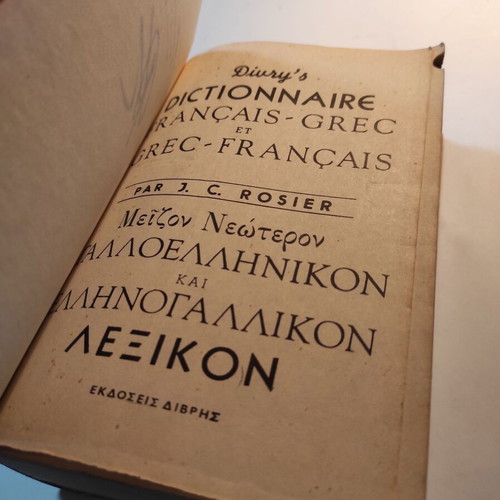 Divry's
DICTIONNAIRE
FRANÇAIS-GREC
ET
GREC-FRANÇAIS
PAR J. C. ROSIER
Μεῖζον Νεώτερον
ΓΑΛΛΟΕΛΛΗΝΙΚΟΝ
ΚΑΙ
ΕΛΛΗΝΟΓΑΛΛΙΚΟΝ
ΛΕΞΙΚΟΝ
ΕΚΔΟΣΕΙΣ ΔΙΒΡΗΣ